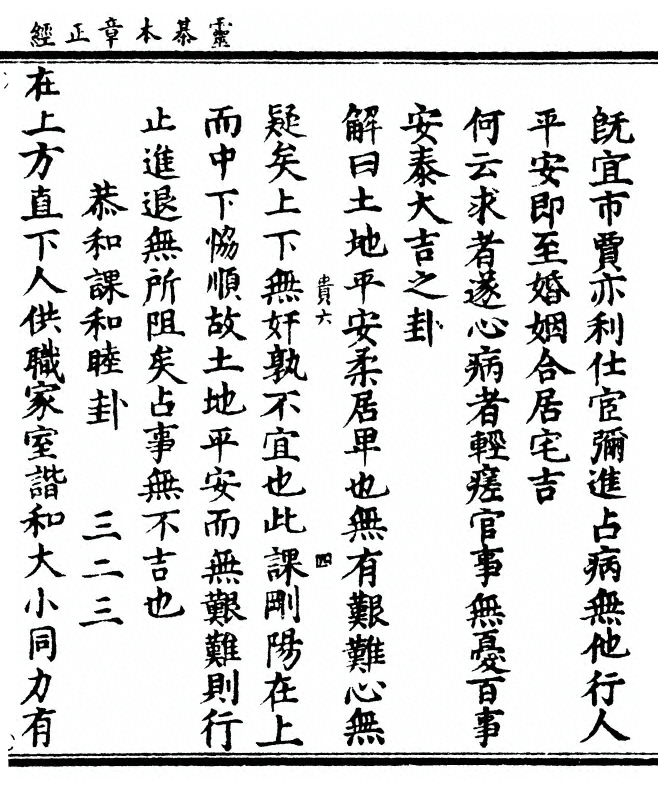 靈棊本章正經
既宜市賈亦利仕宦彌進占病無他行人
平安即至婚姻合居宅吉
何云求者遂心病者輕瘥官事無憂百事
安泰大吉之卦
解曰土地平安柔居卑也無有艱難心無
貴六
四
疑矣上下無奸孰不宜也此課剛陽在上
而中下恊順故土地平安而無艱難則行
止進退無所阻矣占事無不吉也
恭和課和睦卦 三二三
在上方直下人供職家室諧和大小同力有